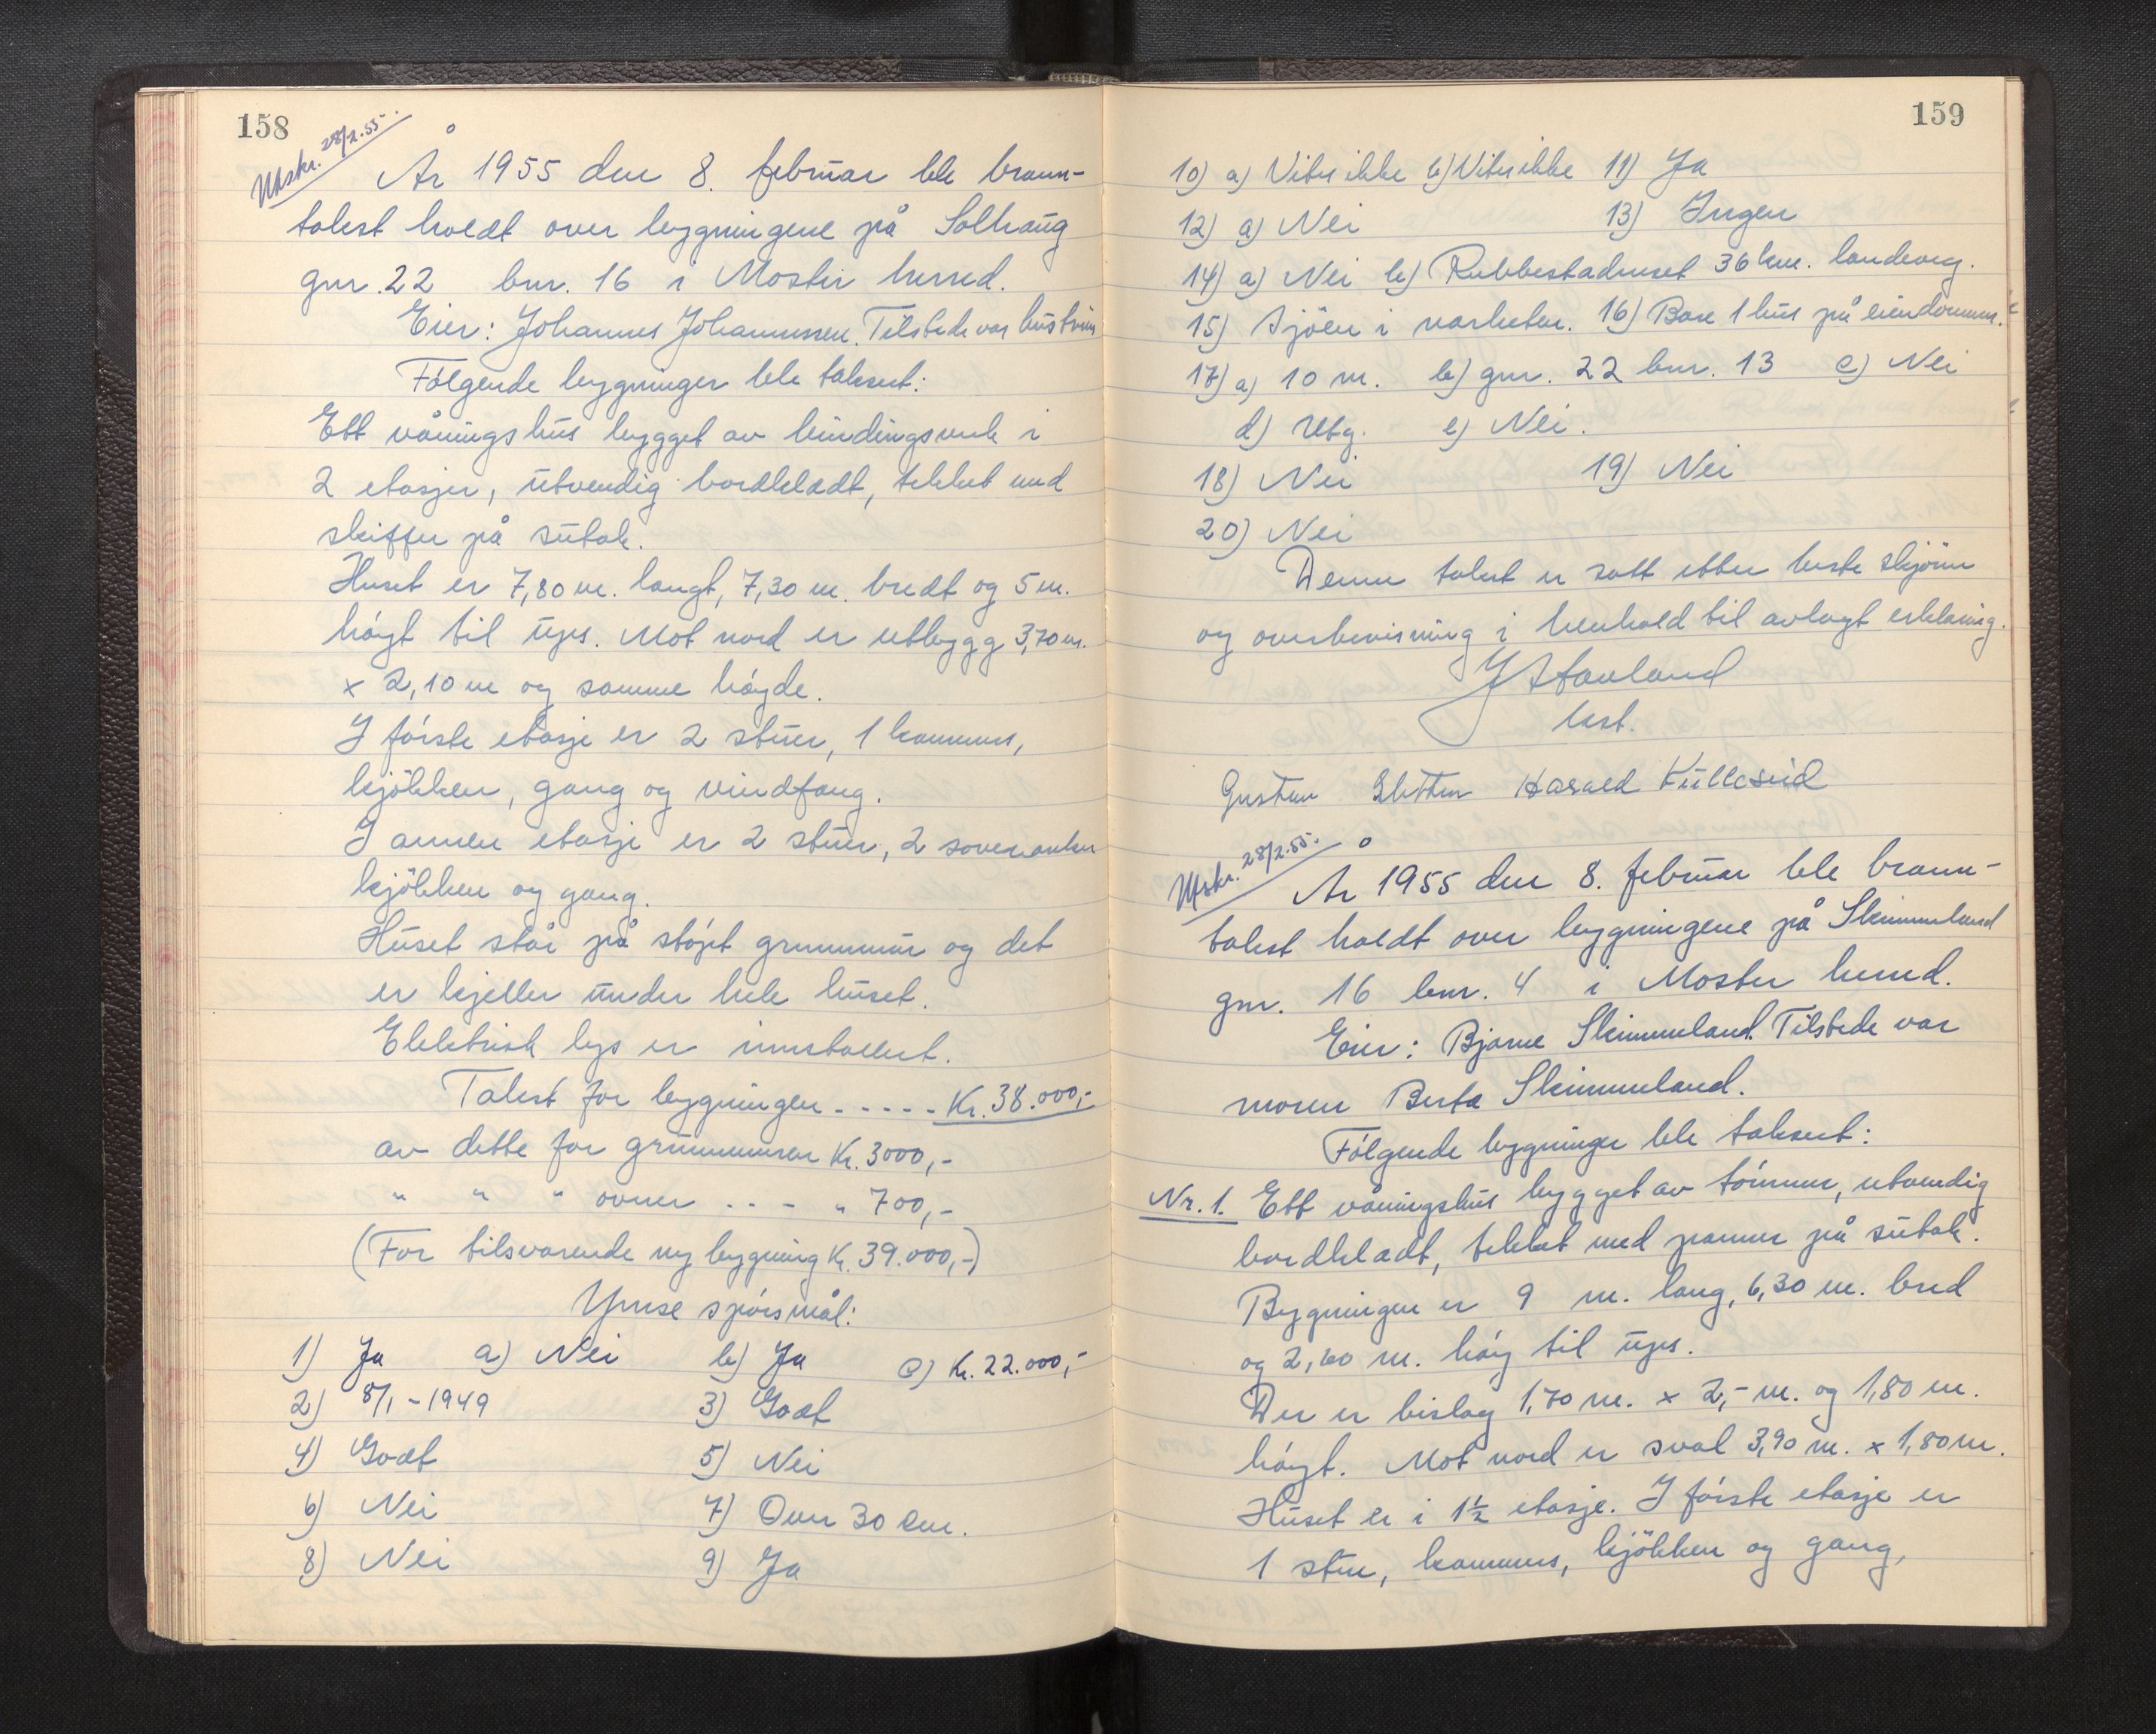 158
Utskr. 28/2.55.
År 1955 den 8. februar ble brann-
takst holdt over bygningene på Solhaug
gnr. 22 bnr. 16 i Moster herred.
Eier: Johannes Johannessen. Tilstede var hustruen
Følgende bygninger ble taksert:
Ett våningshus bygget av bindingsverk i
2 etasjer, utvendig bordkledt, tekket med
skiffer på sutak.
Huset er 7,80 m. langt, 7,30 m. bredt og 5 m.
høyt til ups. Mot nord er utbygg 3,70 m.
x 2,10 m og samme høyde.
I første etasje er 2 stuer, 1 kammers,
kjøkken, gang og vindfang.
I annen etasje er 2 stuer, 2 soveranker
kjøkken og gang.
Huset står på støpt grunnmur og det
er kjeller under hele huset.
Elektrisk lys er innstallert.
Takst for bygningen - - - - - Kr. 38.000,-
av dette for grunnmuren Kr. 3000,-
" " " ovner - - - " 700,-
(For tilsvarende ny bygning Kr. 39.000,-)
Ymse spørsmål:
1) Ja a) Nei b) Ja c) Kr. 22.000,-
2) 8/1 - 1949 3) Godt
4) Godt 5) Nei
6) Nei 7) Over 30 cm.
8) Nei 9) Ja
159
10) a) Vites ikke b) Vites ikke 11) Ja
12) a) Nei 13) Ingen
14) a) Nei b) Rubbestadneset 36 km. landeveg.
15) Sjøen i nærheten. 16) Bare 1 hus på eiendommen.
17) a) 10 m. b) gnr. 22 bnr. 13 c) Nei
d) Utg. e) Nei.
18) Nei 19) Nei
20) Nei
Denne takst er satt etter beste skjønn
og overbevisning i henhold til avlagt erklæring.
J Stavland
lest.
Gustav Sletten Harald Kulleseid
Utskr. 28/2.55.
År 1955 den 8. februar ble brann-
takst holdt over bygningene på Skimmeland
gnr. 16 bnr. 4 i Moster herred.
Eier: Bjarne Skimmeland. Tilstede var
moren Berta Skimmeland.
Følgende bygninger ble taksert:
Nr. 1. Ett våningshus bygget av tømmer, utvendig
bordkledt, tekket med panner på sutak.
Bygningen er 9 m. lang, 6,30 m. bred
og 2,60 m. høy til ups.
Der er bislag 1,70 m. x 2,- m. og 1,80 m.
høyt. Mot nord er sval 3,90 m. x 1,80 m.
Huset er i 1½ etasje. I første etasje er
1 stue, kammers, kjøkken og gang,